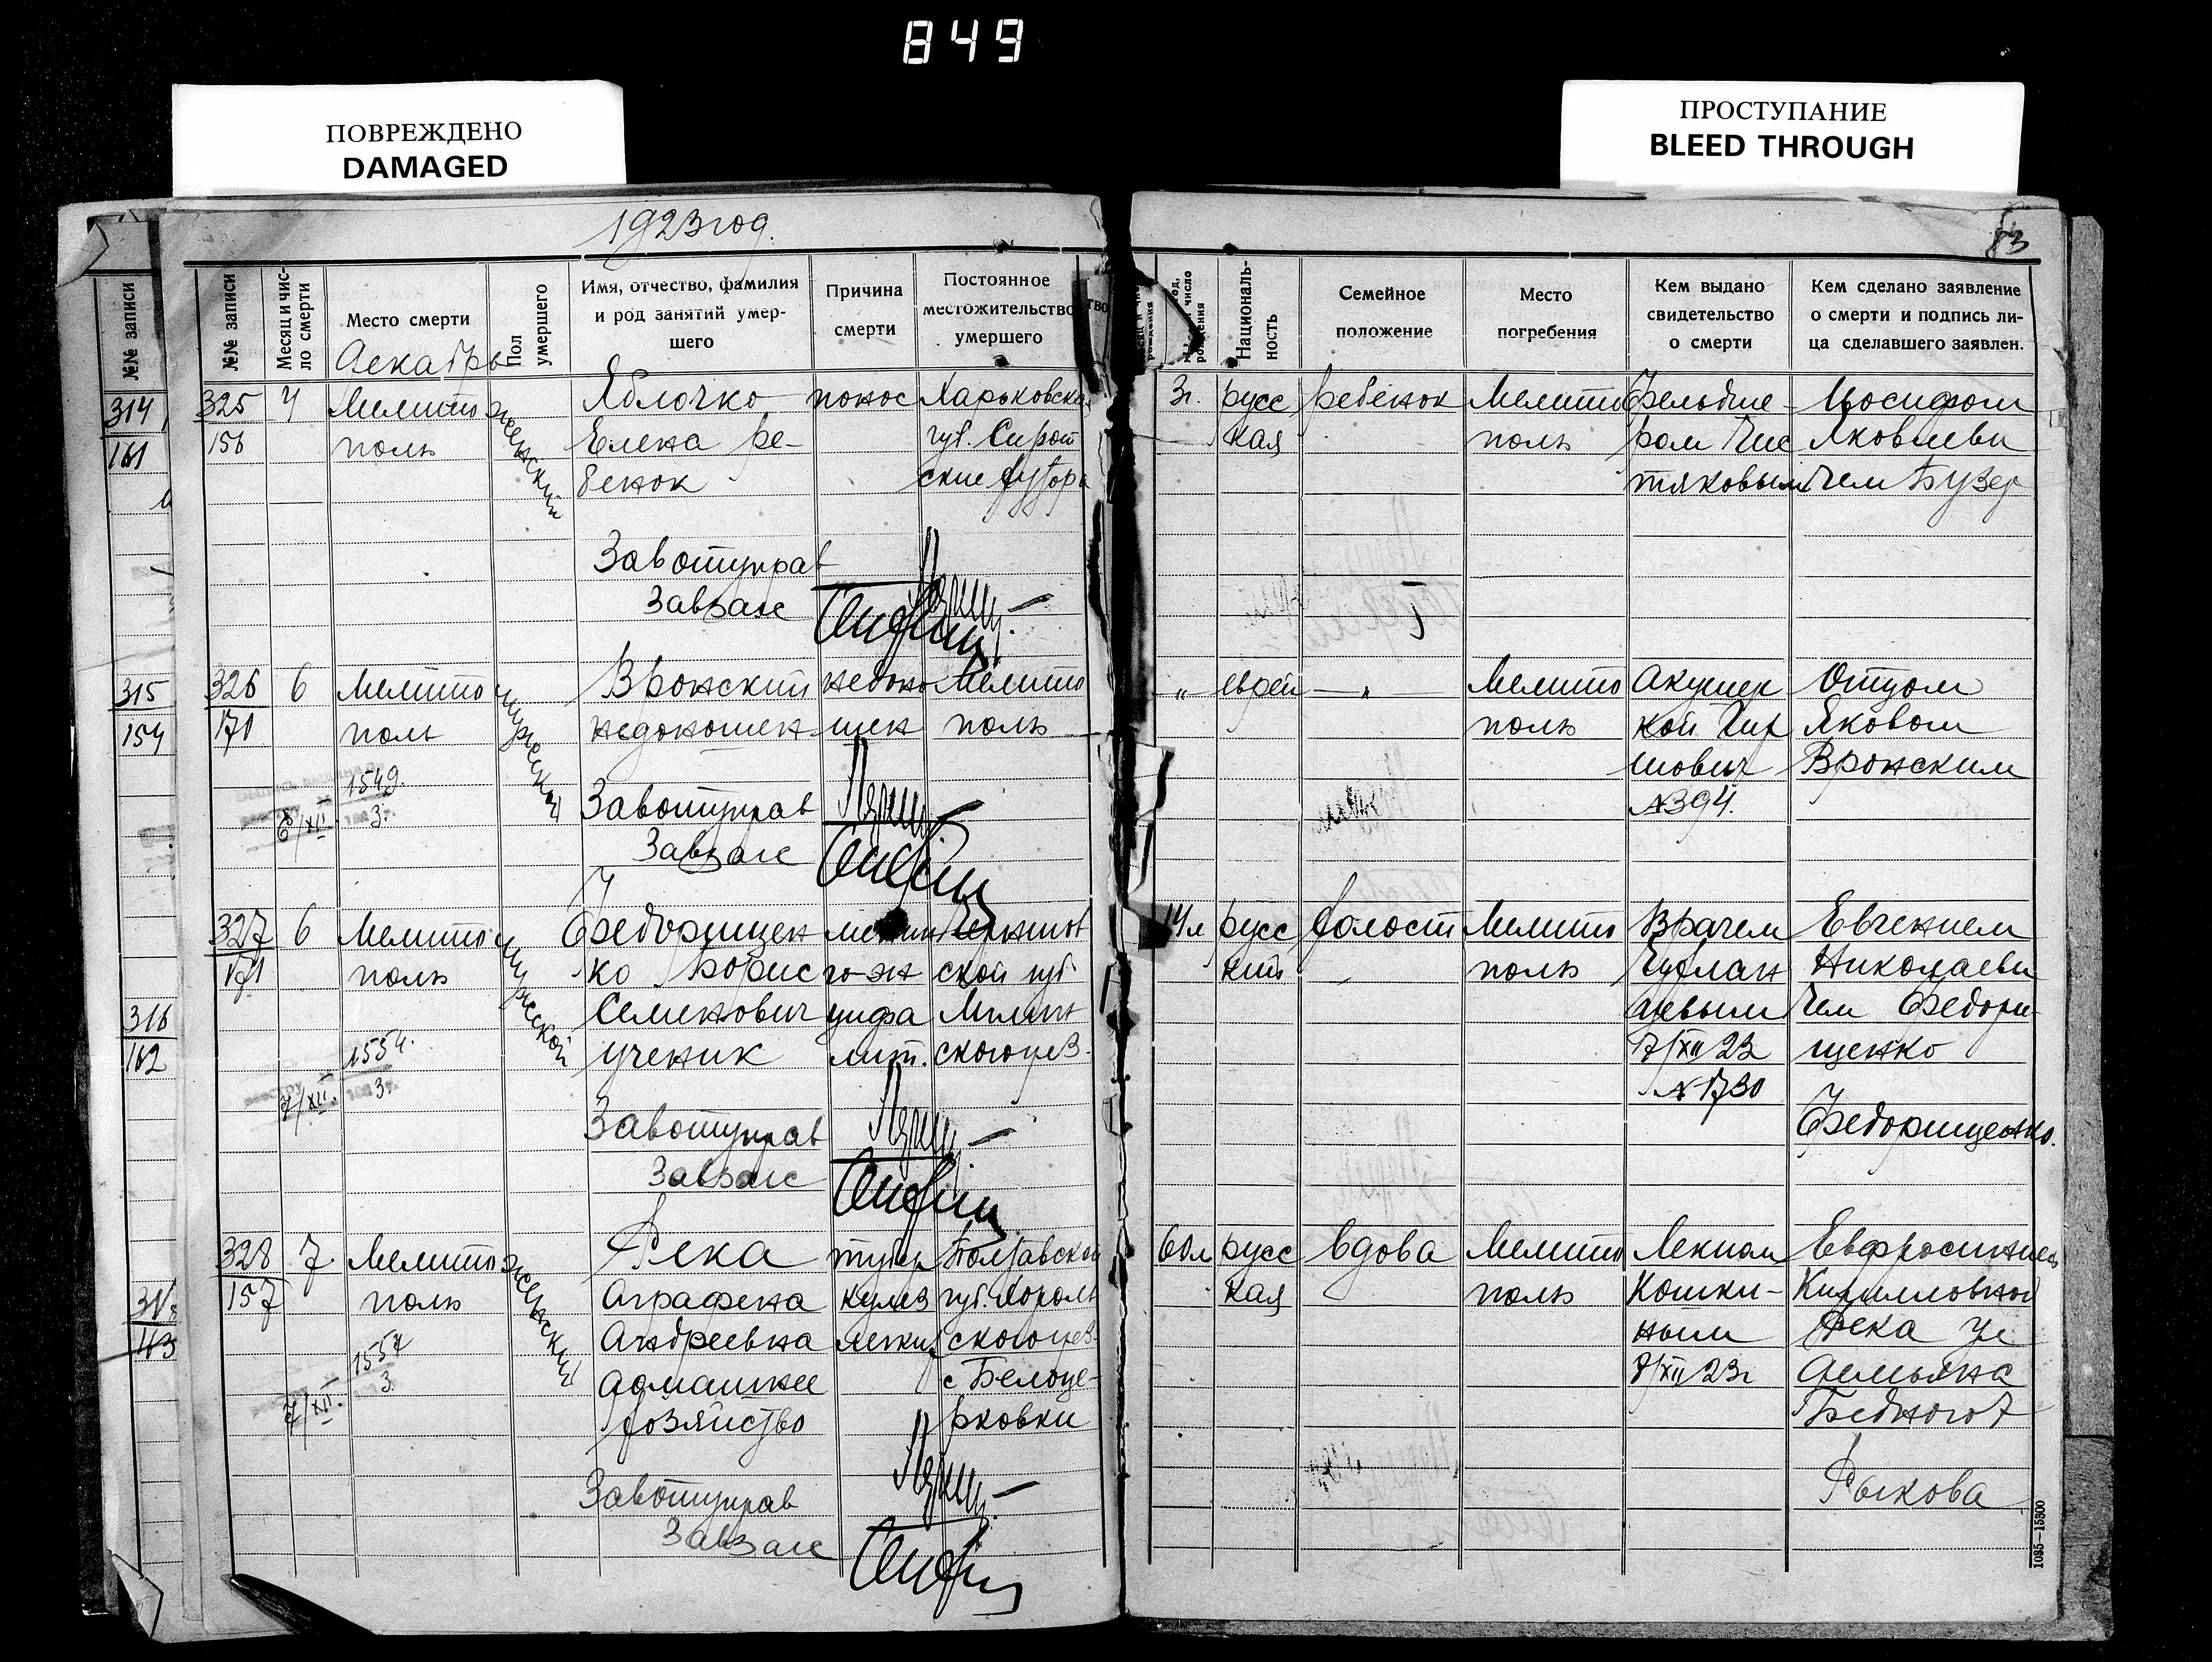 849
ПОВРЕЖДЕНО
DAMAGED
ПРОСТУПАНИЕ
BLEED THROUGH
1923 год.
83
№№ записи
314
161
315
154
316
162
№№ записи
Месяц и чис-
ло смерти
Место смерти
Декабрь
Пол
умершего
Имя, отчество, фамилия
и род занятий умер-
шего
Причина
смерти
Постоянное
местожительство
умершего
Националь-
ность
Семейное
положение
Место
погребения
Кем выдано
свидетельство
о смерти
Кем сделано заявление
о смерти и подпись ли-
ца сделавшего заявлен.
325
156
4
Мелито
поль
женский
Яблочко
Елена ре-
бенок
понос
Харьковска
губ. Сирот
ские хутора
3г.
русс
кая
ребенок
Мелито
поль
Фельдше-
ром Чис
тяковым
Иосифом
Яковлеви
чем Бузер
Завотуправ
Завзагс
326
171
6
Мелито
поль
мужеский
Вронский
недоношен
недоно
шен
Мелито
поль
"
еврей
— " —
Мелито
поль
Акушер
кой Гир
шович
№394.
Отцом
Яковом
Вронским
1549.
3.
6/XII
Завотуправ
Завзагс
327
171
6
Мелито
поль
мужеской
Федорищен
ко Борис
Семенович
ученик
го-эн
цифа
лит.
Чернигов
ской губ
Мглин
ского уез.
14л
русс
кий
холост
Мелито
поль
Врачем
7/XII 23
№1730
Евгением
Николаеви
чем Федори-
щенко
Федорищенко.
1554.
3.
7/XII.
Завотуправ
Завзагс
328
157
7.
Мелито
поль
женский
Река
Аграфена
Андреевна
домашнее
хозяйство
тубер
кулез
легких
Полтавской
губ. Хороль
ского уез-
с Белоце-
рковки
60л
русс
кая
вдова
Мелито
поль
Лекпом
Кошки-
ным
7/XII 23г
Евфросинией
Кирилловной
Река ул
Демьяна
Бедного 7
Рыкова
1557
3.
7/XII.
Завотуправ
Завзагс
1085—15300